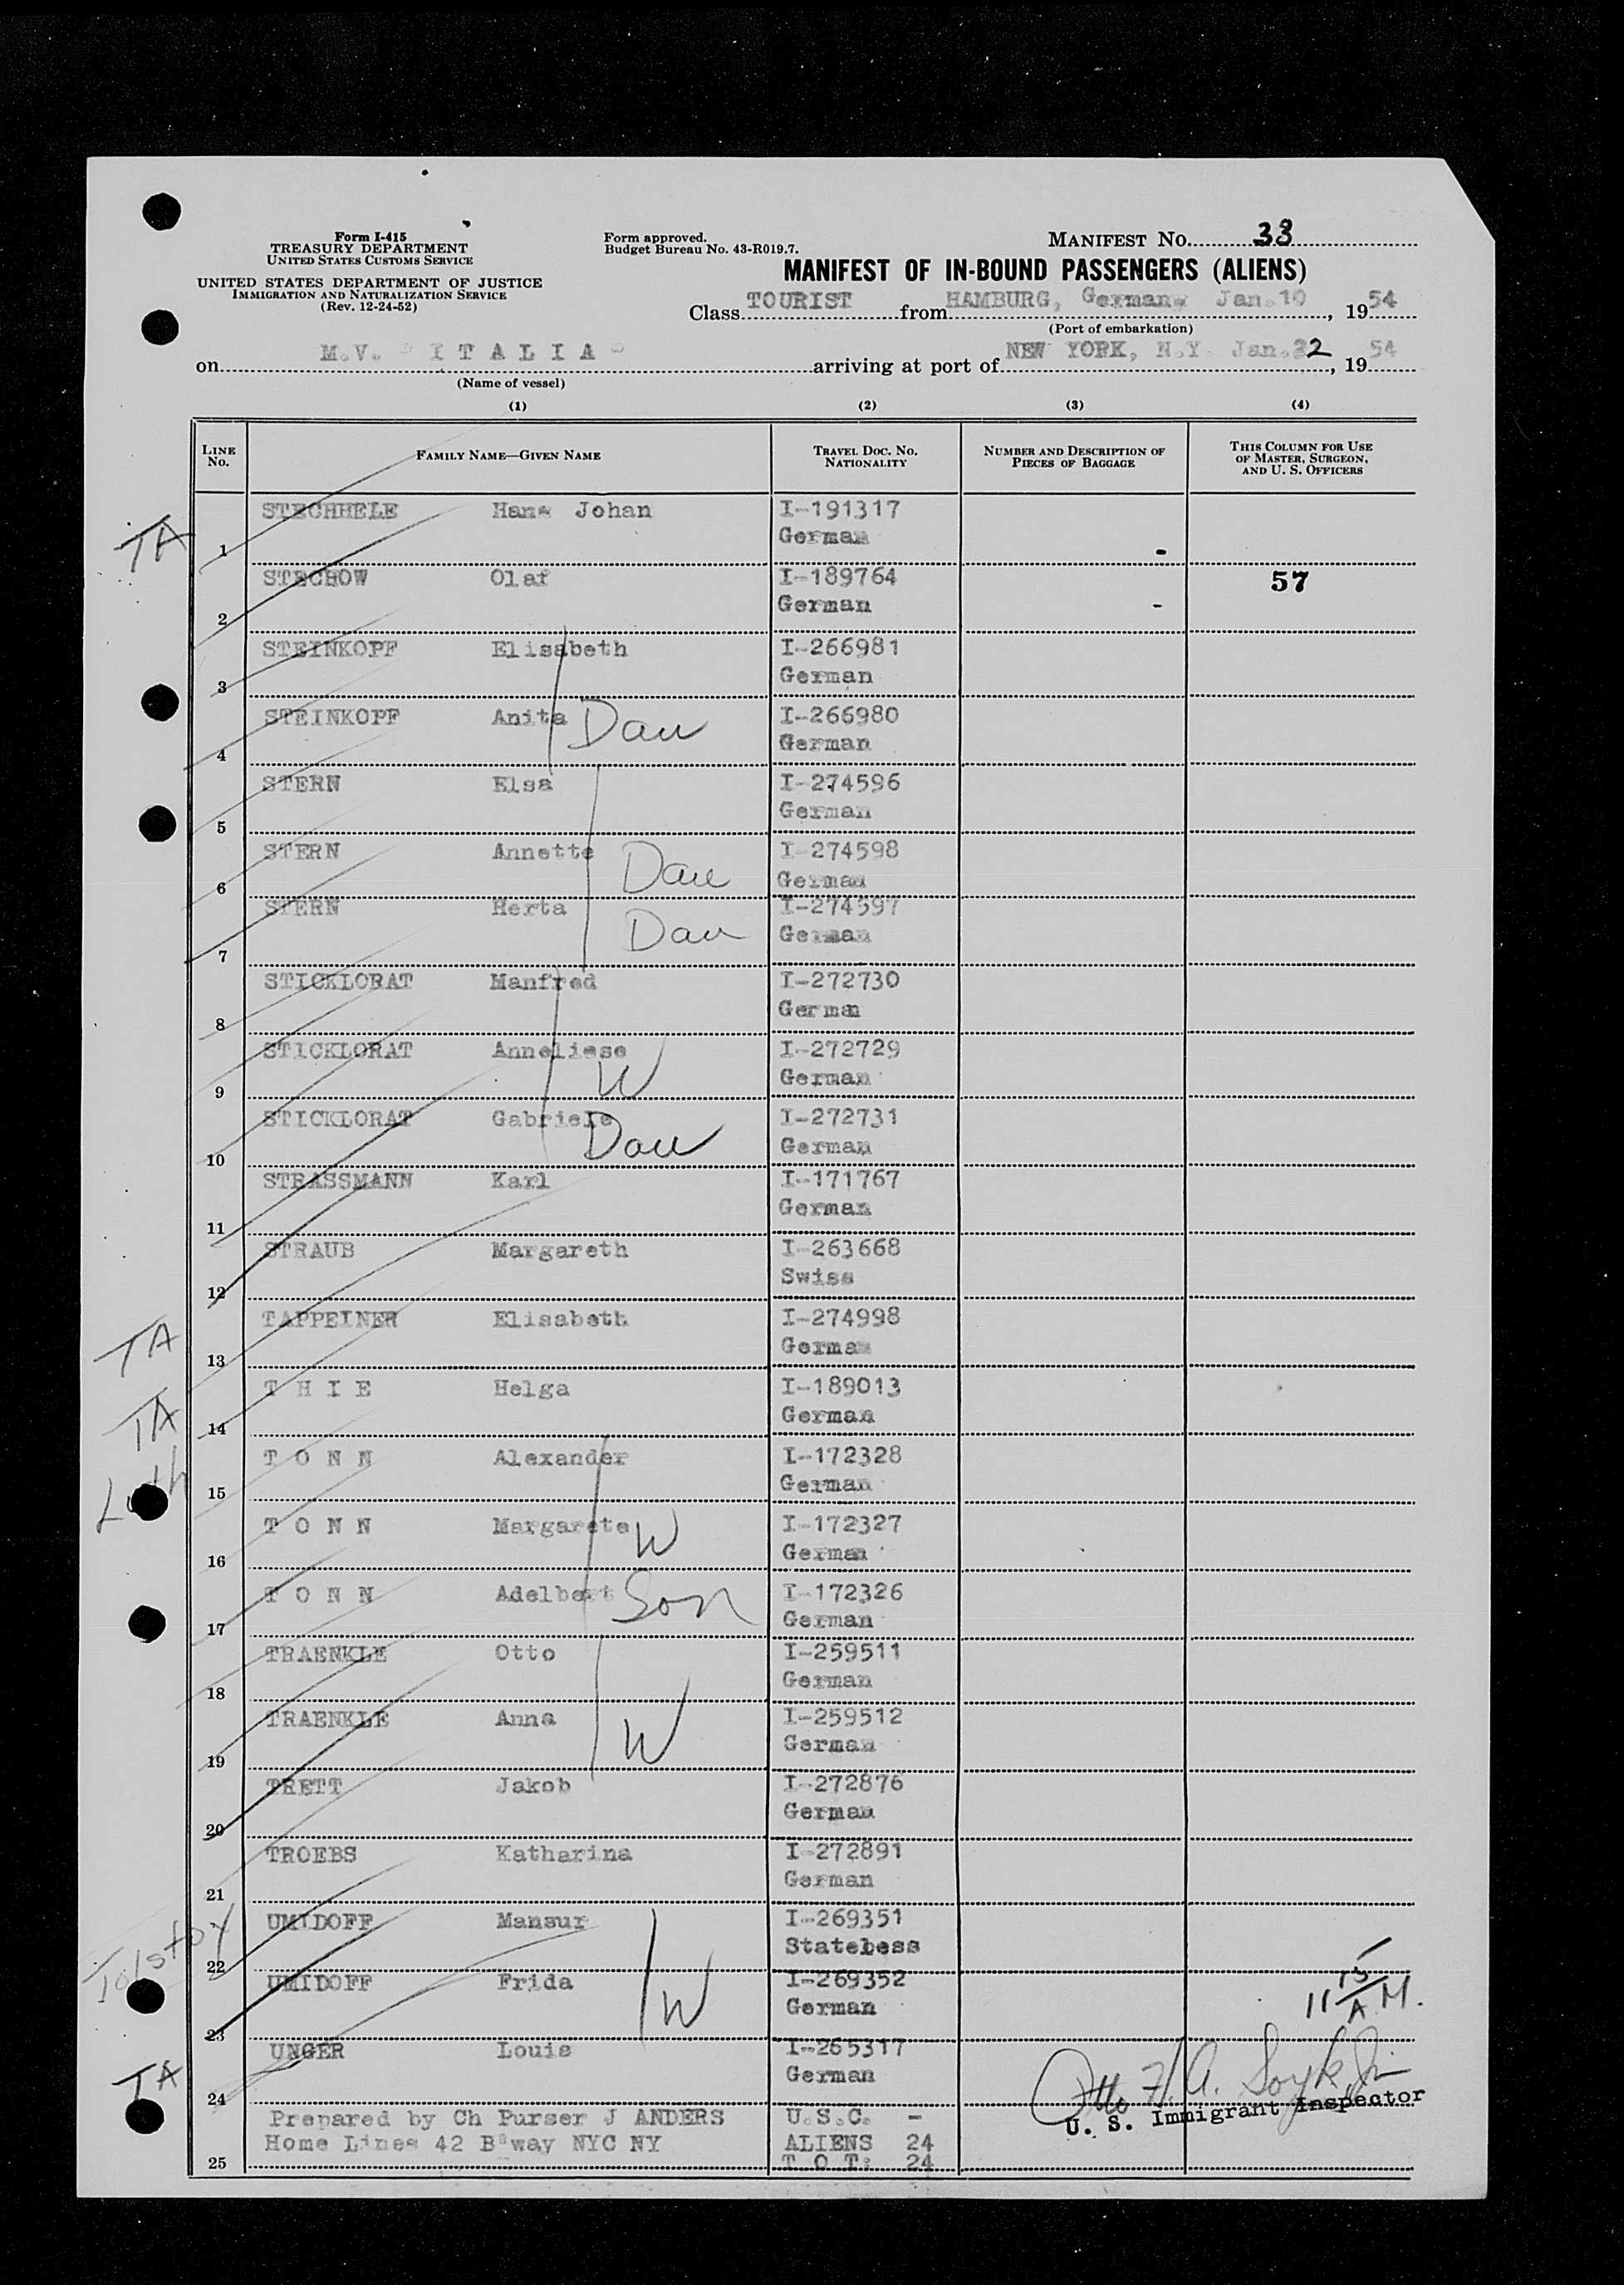 Form I-415
TREASURY DEPARTMENT
UNITED STATES CUSTOMS SERVICE
UNITED STATES DEPARTMENT OF JUSTICE
IMMIGRATION AND NATURALIZATION SERVICE
(Rev. 12-24-52)
Form approved.
Budget Bureau No. 43-R019.7.
MANIFEST No. 33
MANIFEST OF IN-BOUND PASSENGERS (ALIENS)
Class TOURIST from HAMBURG, German Jan.10, 1954
(Port of embarkation)
on M.V. "ITALIA" arriving at port of NEW YORK, N.Y. Jan. 22, 1954
(Name of vessel)
(1) (2) (3) (4)
LINE No. FAMILY NAME—GIVEN NAME TRAVEL DOC. No. NATIONALITY NUMBER AND DESCRIPTION OF PIECES OF BAGGAGE THIS COLUMN FOR USE OF MASTER, SURGEON, AND U. S. OFFICERS
TA 1 STECHHELE Hans Johan I-191317 German -
2 STECHOW Olaf I-189764 German - 57
3 STEINKOPF Elisabeth I-266981 German
4 STEINKOPF Anita Dau I-266980 German
5 STERN Elsa I-274596 German
6 STERN Annette Dau I-274598 German
7 STERN Herta Dau I-274597 German
8 STICKLORAT Manfred I-272730 German
9 STICKLORAT Anneliese W I-272729 German
10 STICKLORAT Gabriele Dau I-272731 German
11 STRASSMANN Karl I-171767 German
12 STRAUB Margareth I-263668 Swiss
TA 13 TAPPEINER Elisabeth I-274998 German
TA 14 T H I E Helga I-189013 German
Luth 15 T O N N Alexander I-172328 German
16 T O N N Margarete W I-172327 German
17 T O N N Adelbert Son I-172326 German
18 TRAENKLE Otto I-259511 German
19 TRAENKLE Anna W I-259512 German
20 TRETT Jakob I-272876 German
21 TROEBS Katharina I-272891 German
Tolstoy 22 UMIDOFF Mansur I-269351 Stateless
23 UMIDOFF Frida W I-269352 German 11 15 A.M.
TA 24 UNGER Louis I-265317 German
Otto H. A. Soyk Jr
U. S. Immigrant Inspector
25 Prepared by Ch Purser J ANDERS U.S.C. -
Home Lines 42 B'way NYC NY ALIENS 24
T O T: 24